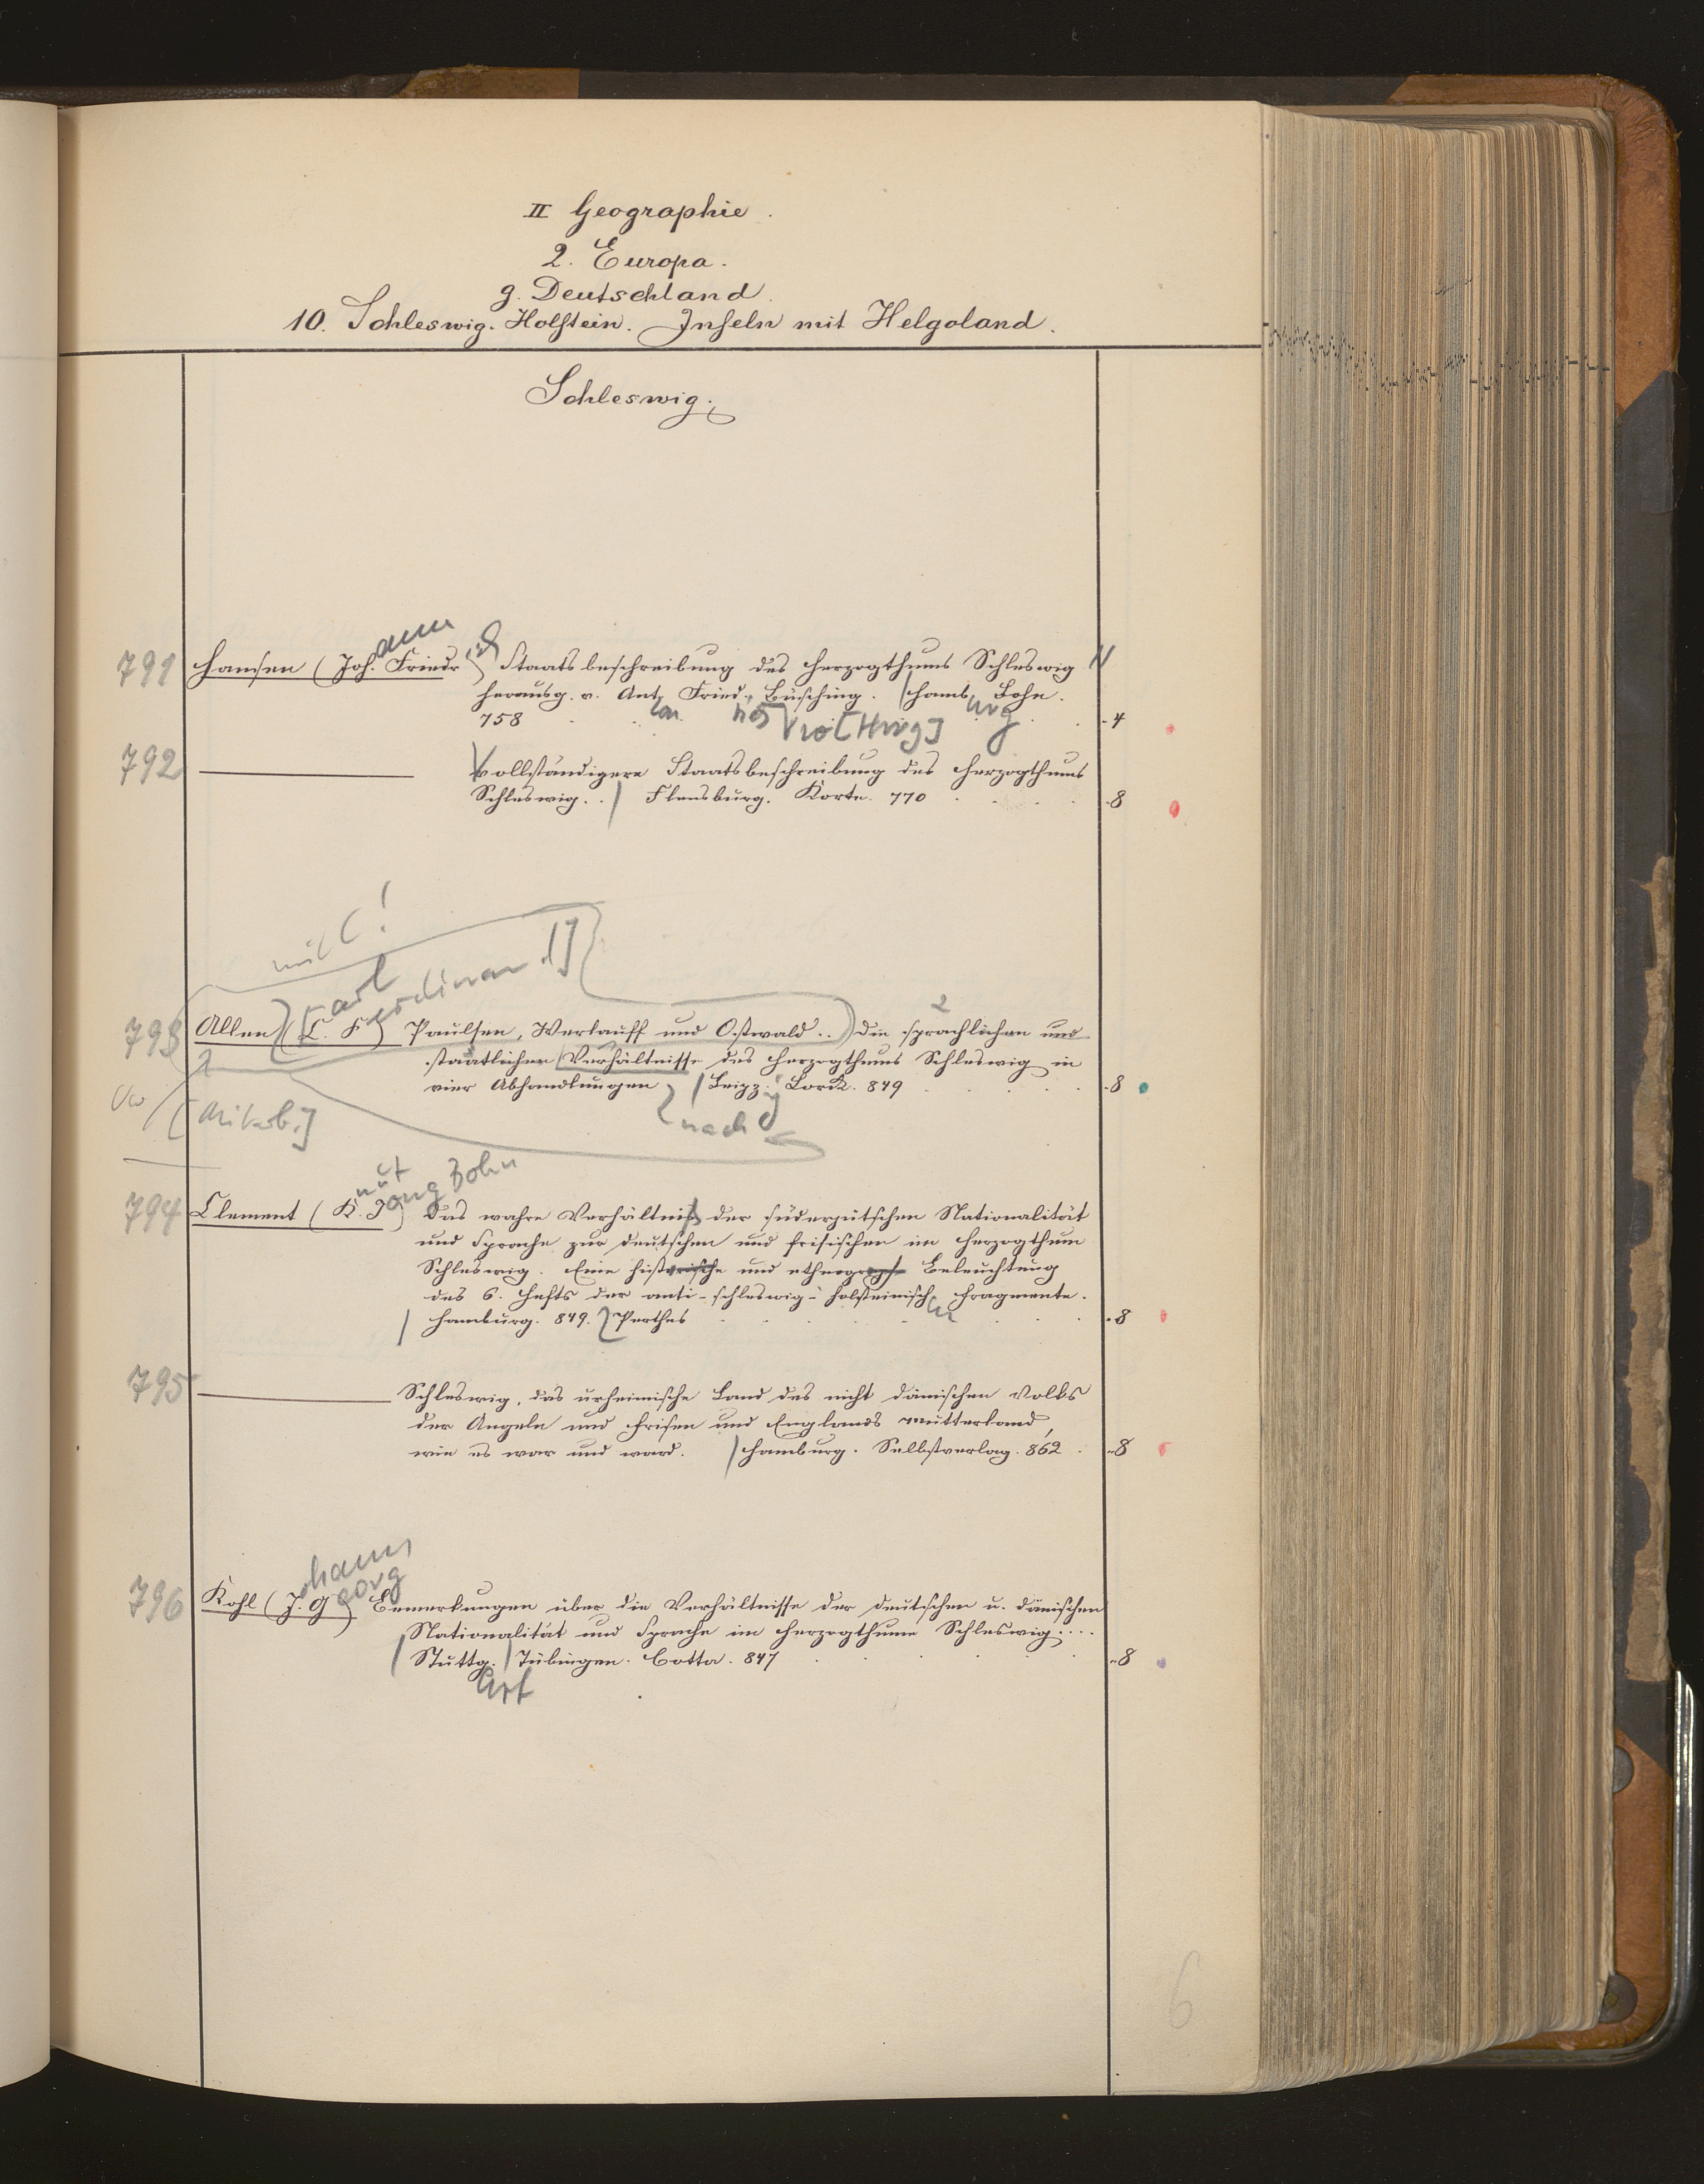 II Geographie.
2. Europa.
g. Deutschland.
10. Schleswig. Holstein. Inseln mit Helgoland.
Schleswig.
ann
791 Hansen (Joh. Friedr) Staatsbeschreibung des Herzogthums Schleswig
herausg. v. Ant. Fried. Büsching. Hamb. Bohn.
758 4
[Hrsg] urg
792 Vollständigere Staatsbeschreibung des Herzogthums
Schleswig.. Flensburg. Korte. 770 8
mit C!
arl
erdinand]
2
793 Allen (C. F) Paulsen, Werlauff und Ostwald.. Die sprachlichen und
staatlichen Verhältnisse des Herzogthums Schleswig in
vier Abhandlungen Leipz. Lorck. 849 8
[Mitarb.]
nach
nut
ong Bohn
794 Clement (K. J) Das wahre Verhältniß der süderjütschen Nationalität
und Sprache zur deutschen und frisischen im Herzogthum
Schleswig. Eine historische und ethnograph Beleuchtung
des 6. Hefts der anti-schleswig-holsteinisch Fragmente.
Hamburg. 849. Perthes 8
795 Schleswig, das urheimische Land des nicht dänischen Volks
der Angeln und Frisen und Englands Mutterland,
wie es war und ward. Hamburg. Selbstverlag. 862 8
ohann
eorg
796 Kohl (J. G) Bemerkungen über die Verhältnisse der deutschen u. dänischen
Nationalität und Sprache im Herzogthume Schleswig....
Stuttg. Tübingen. Cotta. 847 8
art
6